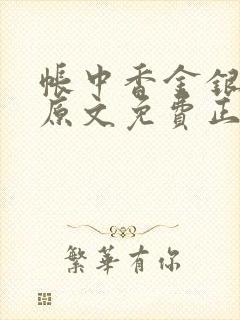 帳中香金銀
原文免費正
繁華有你